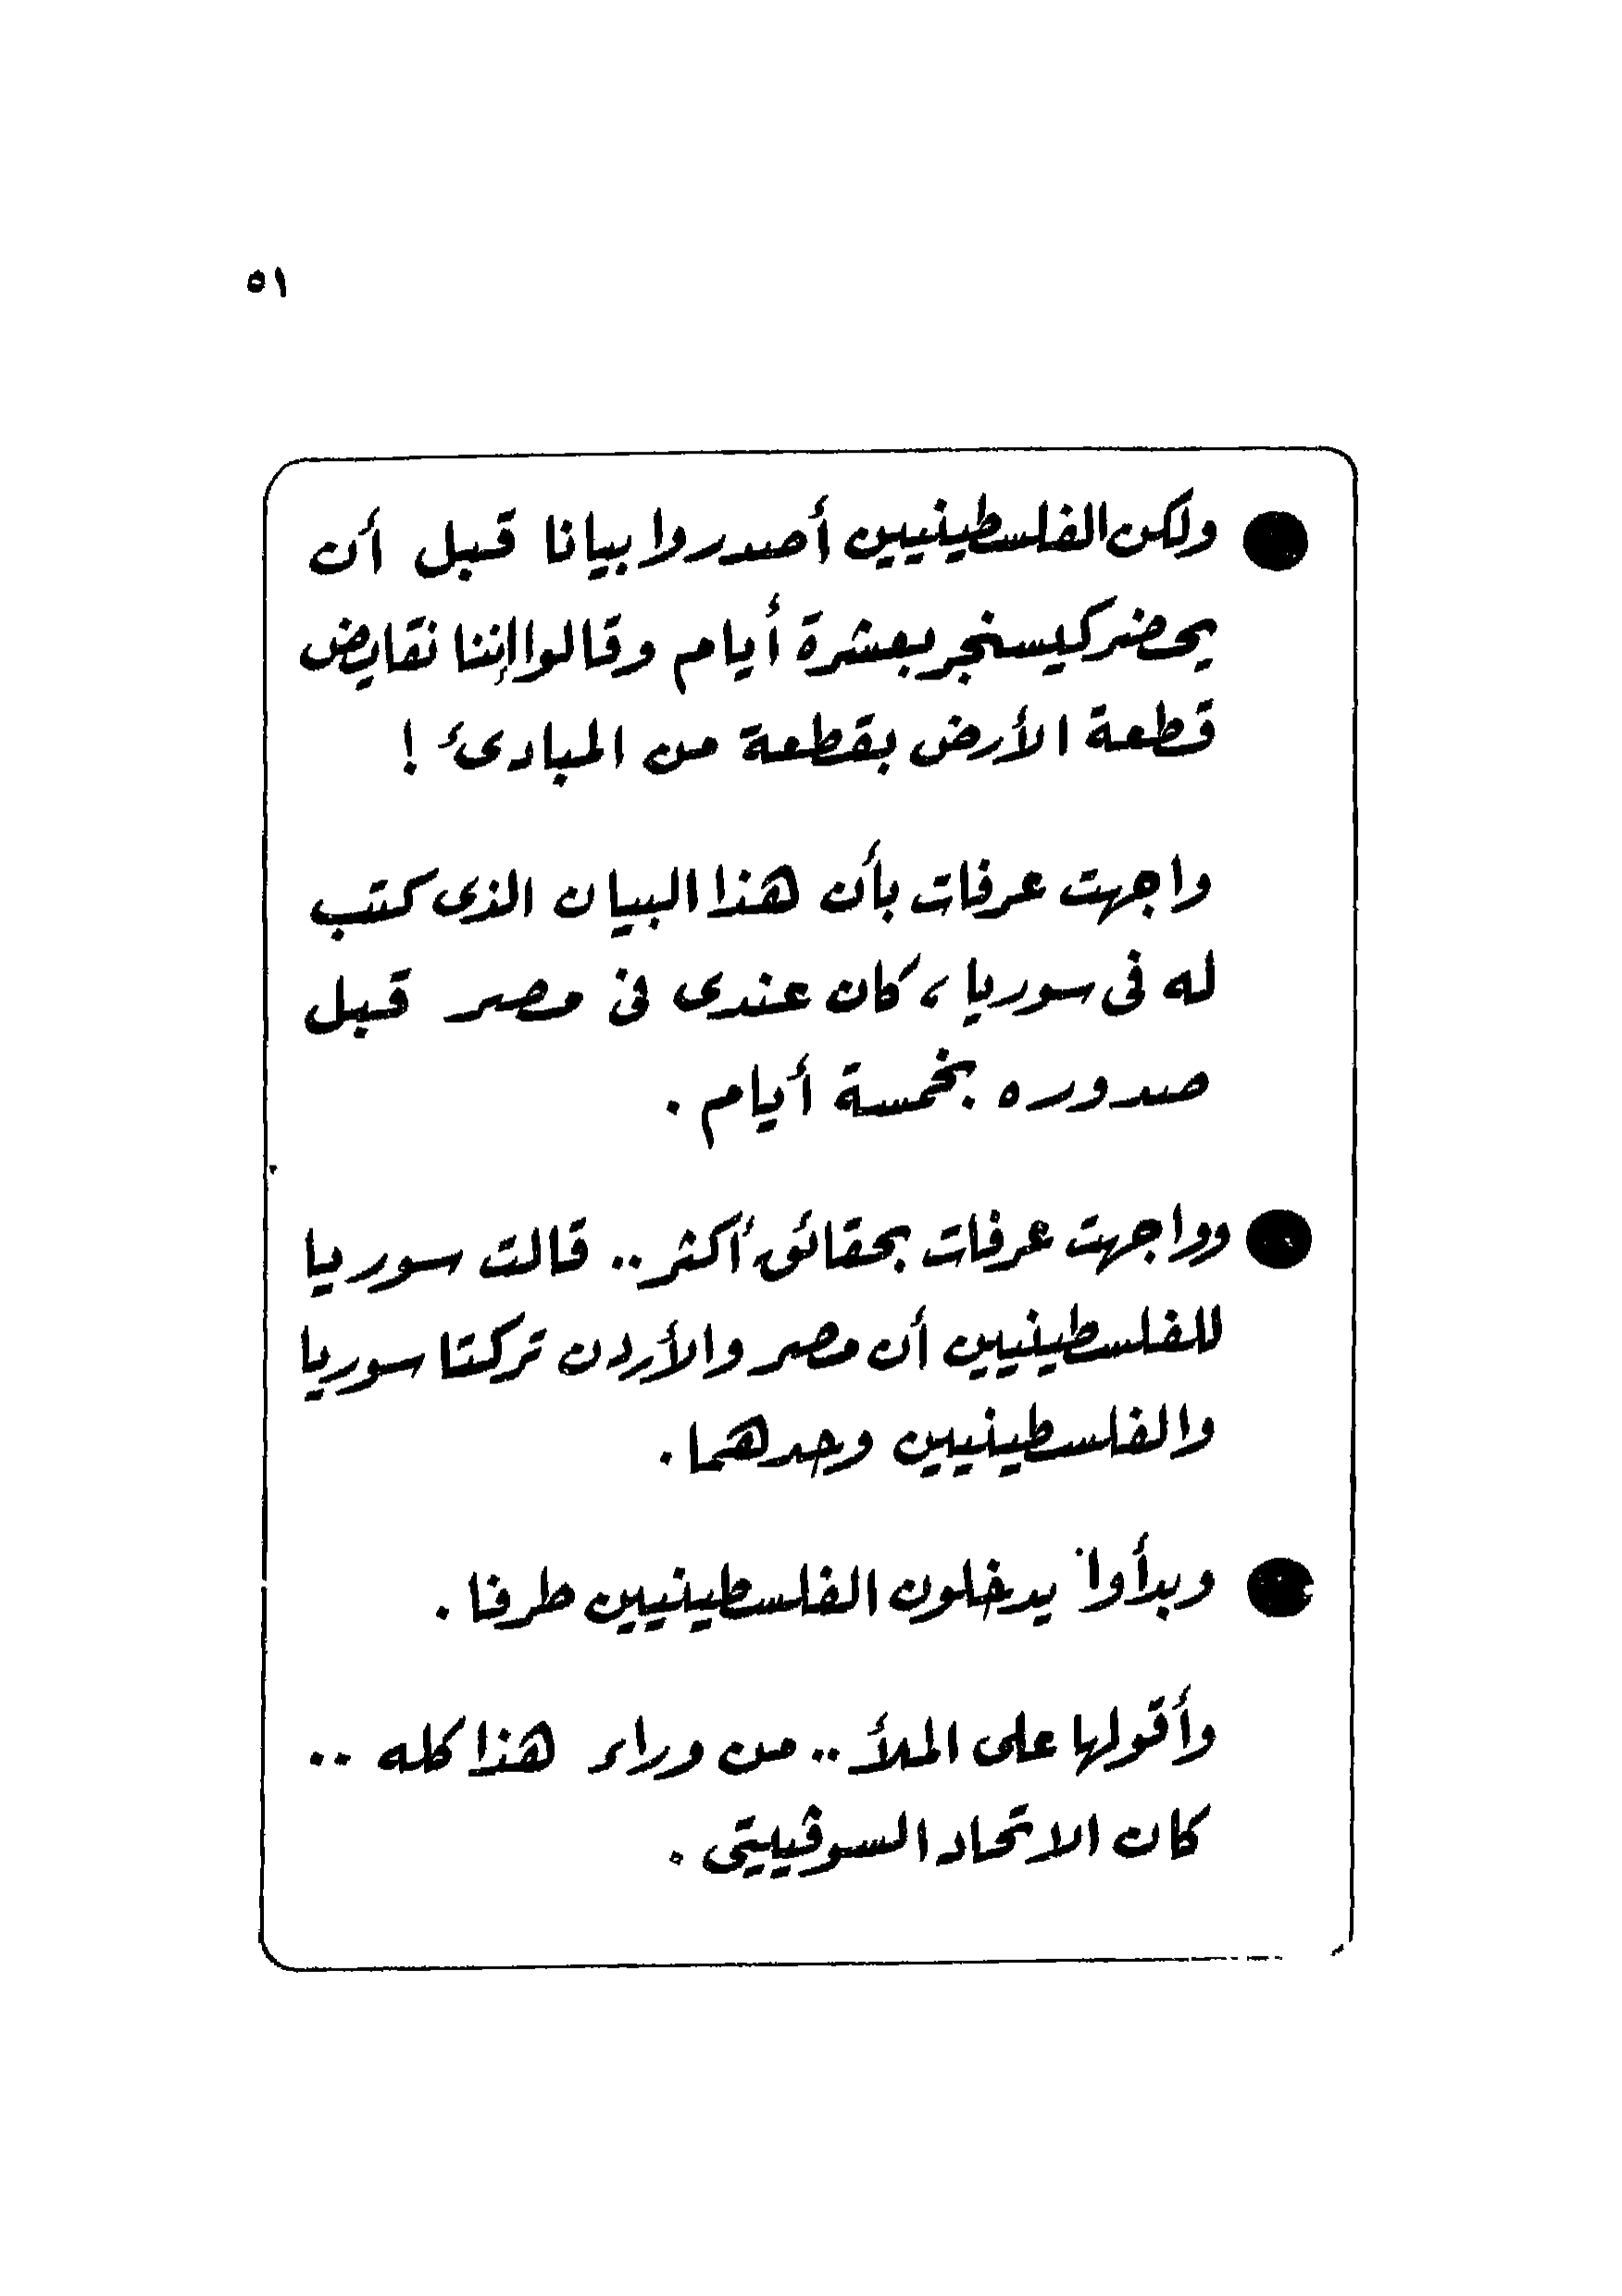 ٥١
● ولكن الفلسطينيين أصدروا بيانا قبل أن
يحضر كيسنجر بعشرة أيام وقالوا إننا نقايض
قطعة الأرض بقطعة من المبادئ !
واجهت عرفات بأن هذا البيان الذى كتب
له فى سوريا ، كان عندى فى مصر قبل
صدوره بخمسة أيام .
● وواجهت عرفات بحقائق أكثر .. قالت سوريا
للفلسطينيين أن مصر والأردن تركتا سوريا
والفلسطينيين وحدهما .
● وبدأوا يدخلون الفلسطينيين طرفا .
وأقولها على الملأ .. من وراء هذا كله ..
كان الاتحاد السوڤييتى .